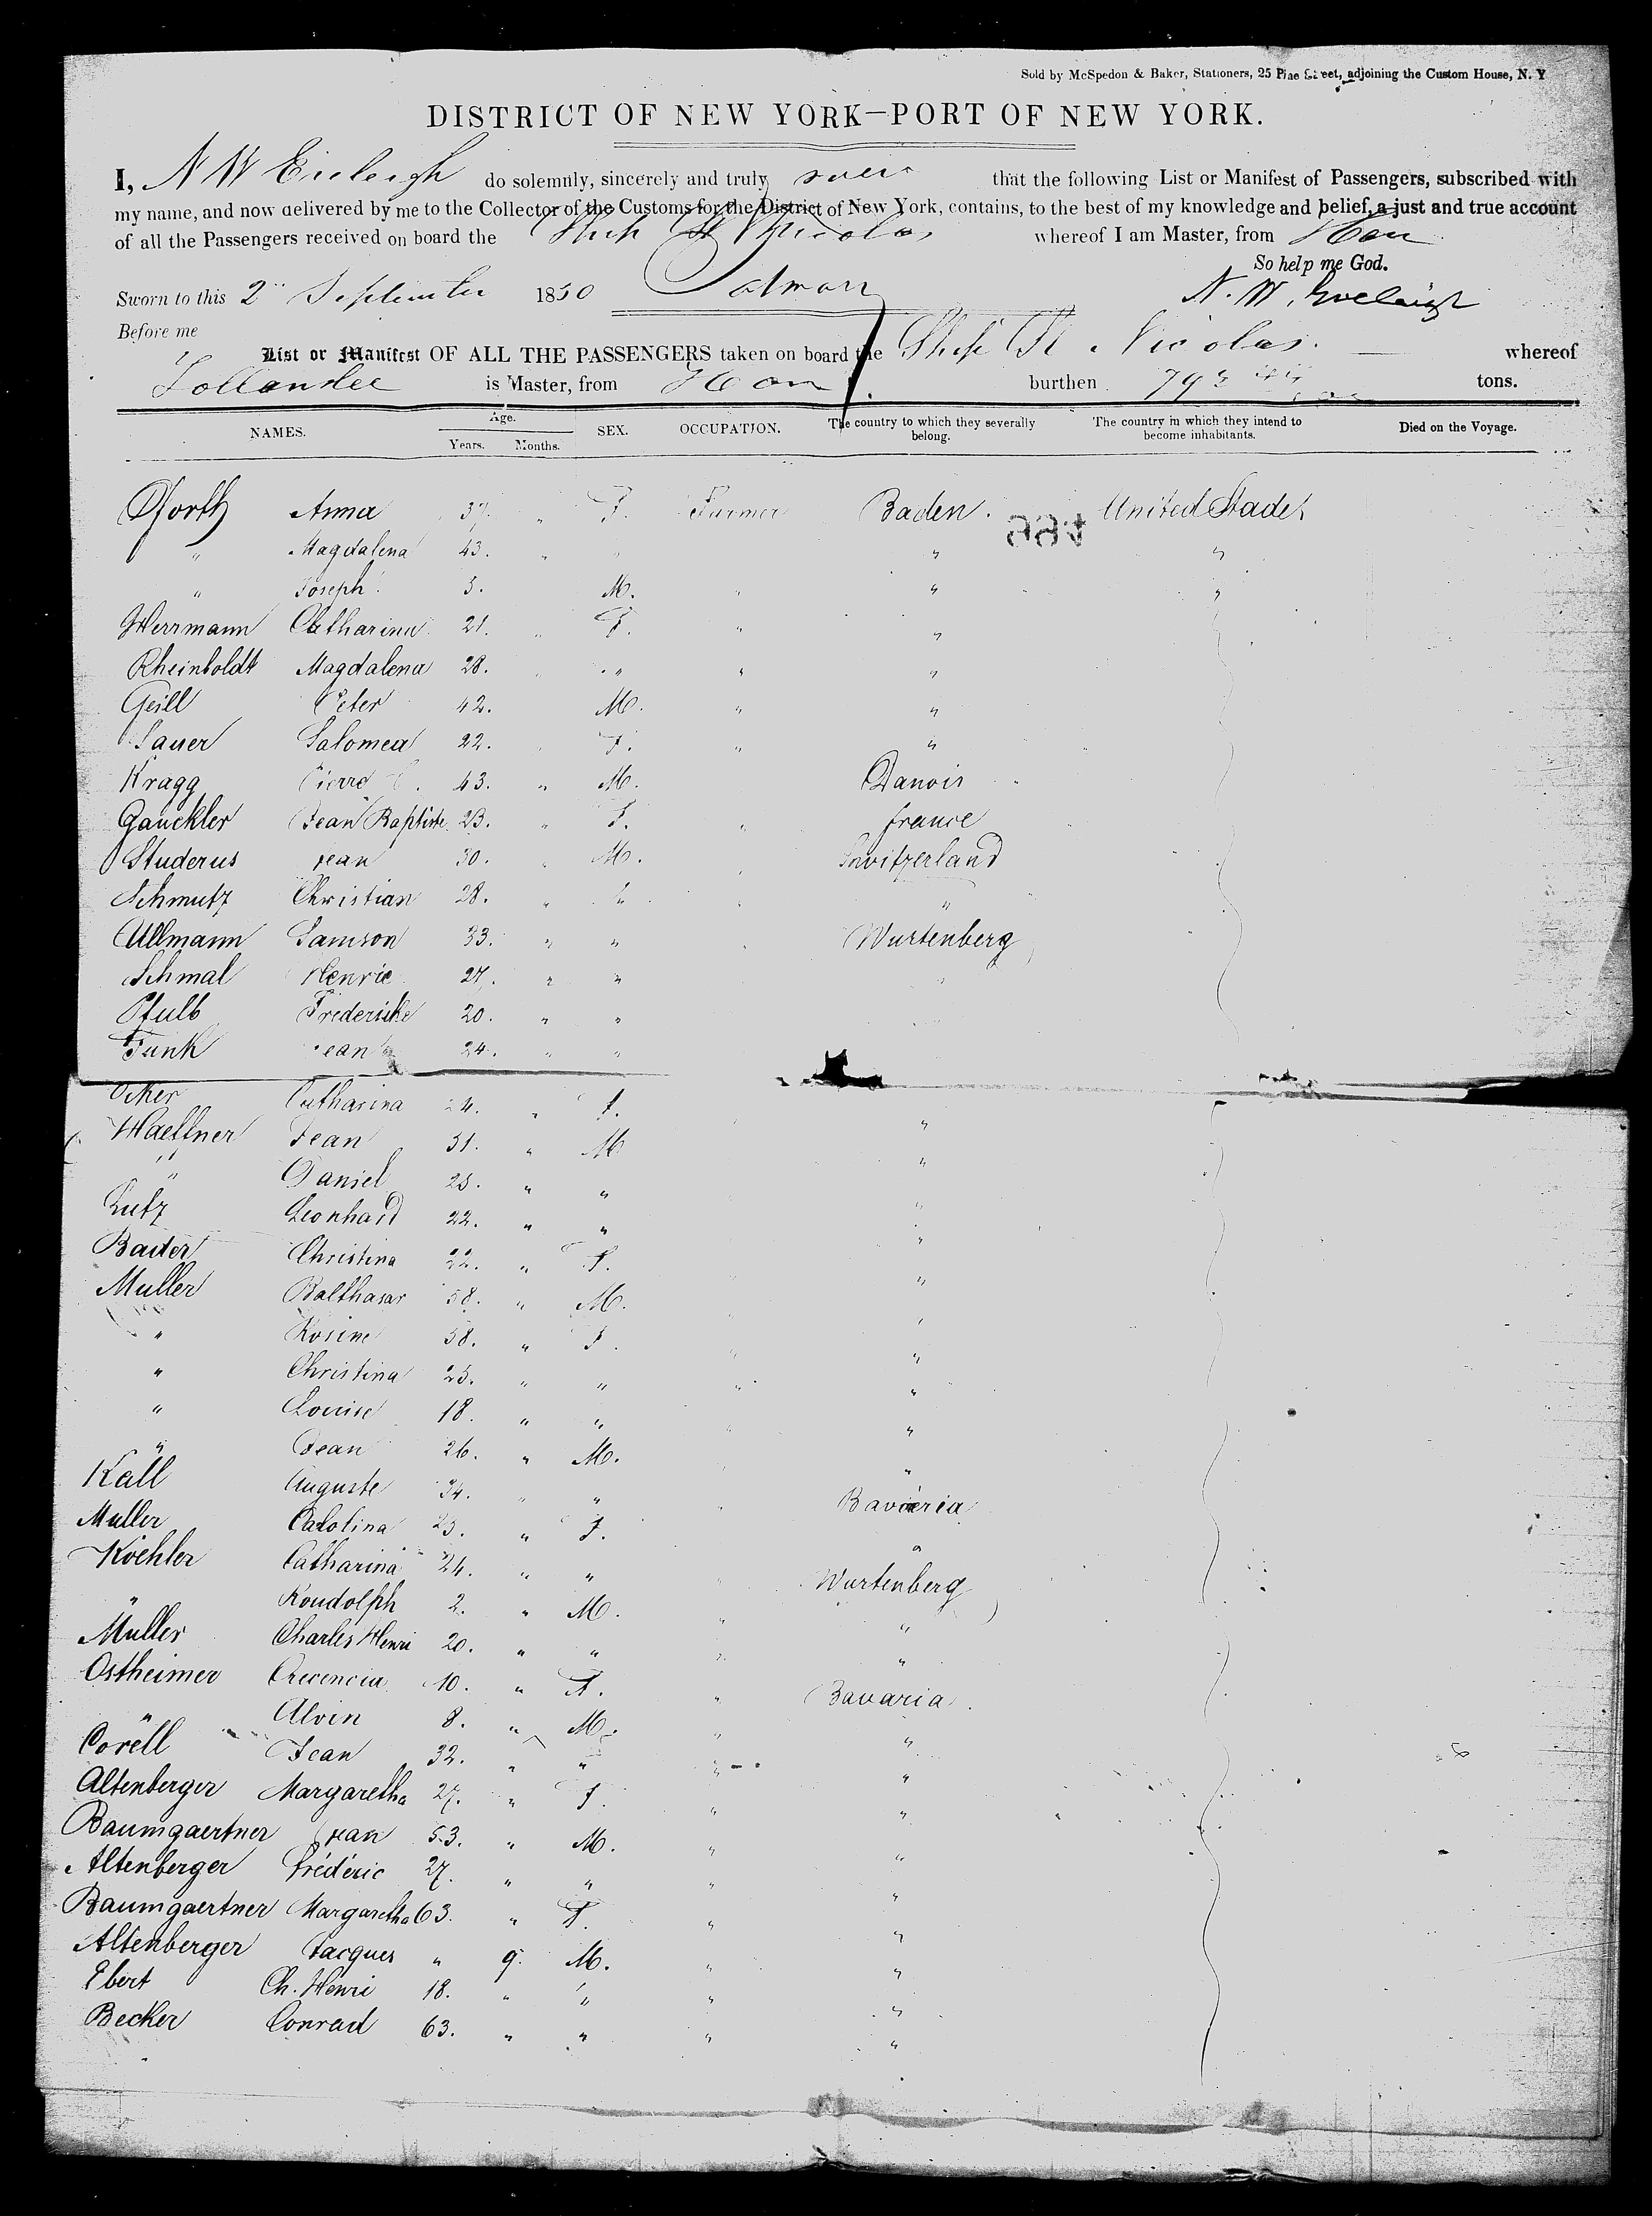 Sold by McSpedon & Baker, Stationers, 25 Pine Street, adjoining the Custom House, N. Y
DISTRICT OF NEW YORK—PORT OF NEW YORK.
I, N W Eveleigh do solemnly, sincerely and truly swear that the following List or Manifest of Passengers, subscribed with
my name, and now delivered by me to the Collector of the Customs for the District of New York, contains, to the best of my knowledge and belief, a just and true account
of all the Passengers received on board the Ship St Nicolas whereof I am Master, from Havre
So help me God.
Sworn to this 2" September 1850 N. W. Eveleigh
Before me
List or Manifest OF ALL THE PASSENGERS taken on board the Ship St Nicolas. whereof
is Master, from burthen tons.
NAMES. Age. Years. Months. SEX. OCCUPATION. The country to which they severally belong. The country in which they intend to become inhabitants. Died on the Voyage.
Pforth Anna 37. " F. Farmer Baden. United Stades
" Magdalena 43. " " " "
" Joseph. 3. M. " " "
Herrmann Catharina 21. " F. " "
Rheinboldt Magdalena 28. " " "
Geill Peter 42. M. " "
Sauer Salomea 22. F. " "
Kragg Pierre 43. " M. Danois
Gauckler Jean Baptiste 23. " F. " france
Studerus Jean 30. " M. Switzerland
Schmutz Christian 28. " " "
Ullmann Samson 33. " " Wurtenberg
Schmal Henrie 27. " "
Pfulb Frederike 20. " "
Funk Jean 24. " "
Oker Catharina 24. " F. "
Haeffner Jean 31. " M "
" Daniel 25. " "
Lutz Leonhard 22. " " "
Bader Christina 22. " F. "
Muller Balthasar 58. " M. "
" Rosine 58. " F. "
" Christina 25. " " " "
" Louise 18. " " "
" Jean 26. " M. "
Kall Auguste 34. " " Bavieria
Muller Carolina 25. " F. "
Koehler Catharina 24. " " Wurtenberg
" Roudolph 2. " M. " "
Muller Charles Henri 20. " " " "
Ostheimer Crecencia 10. " F. " Bavaria.
" Alvin 8. " M. " "
Corell Jean 32. " " " "
Altenberger Margaretha 27. " F. " "
Baumgaertner Jean 53. " M. " "
Altenberger Fréderic 27. " " " "
Baumgaertner Margaretha 63. " F. " "
Altenberger Jacques " 9. M. " "
Ebert Ch. Henri 18. " " " "
Becker Conrad 63. " " " "